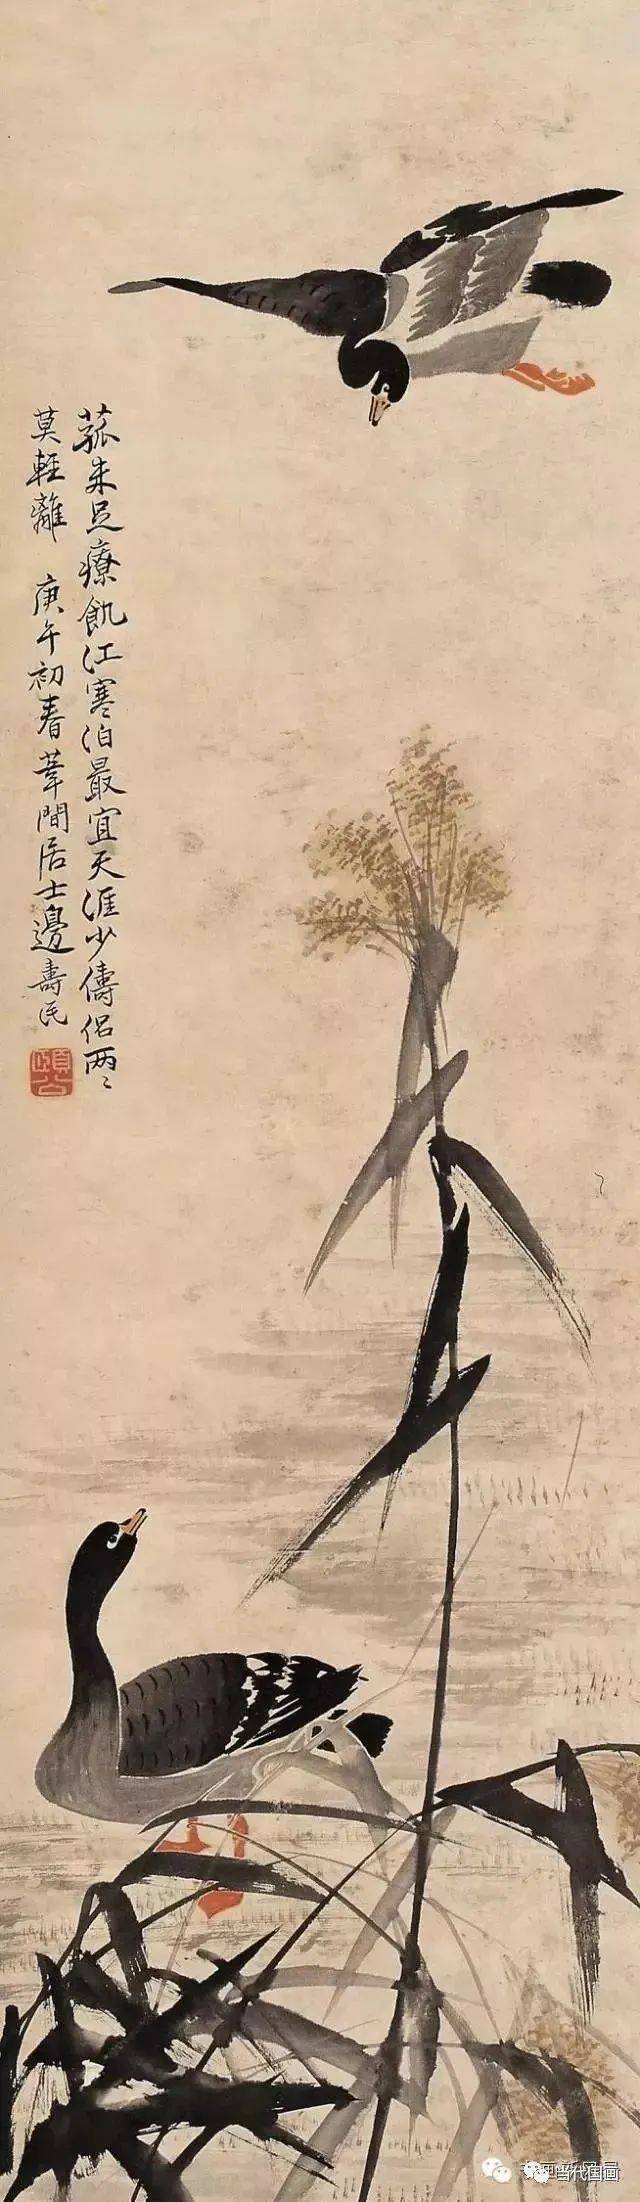 菰米足療飢江寒泊最宜天涯少儔侶兩〻
莫輕離 庚午初春葦間居士邊壽民
頤公
当代国画